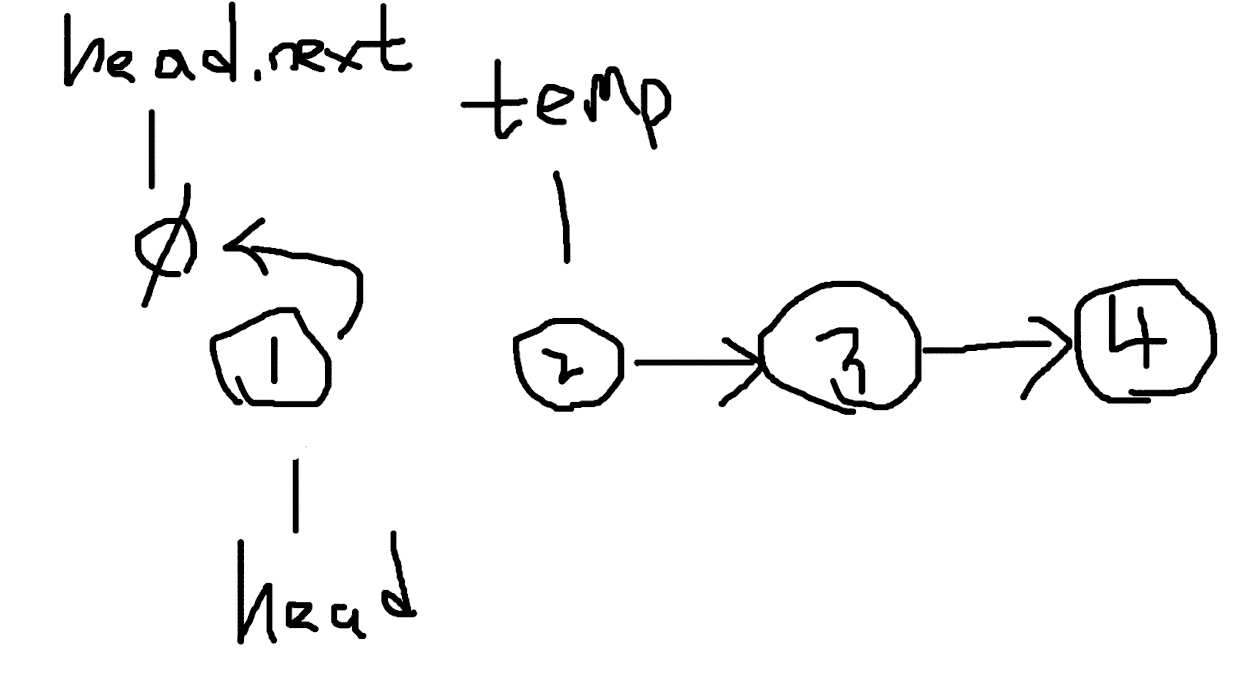 head.next
temp
Ø
1
2
3
4
head